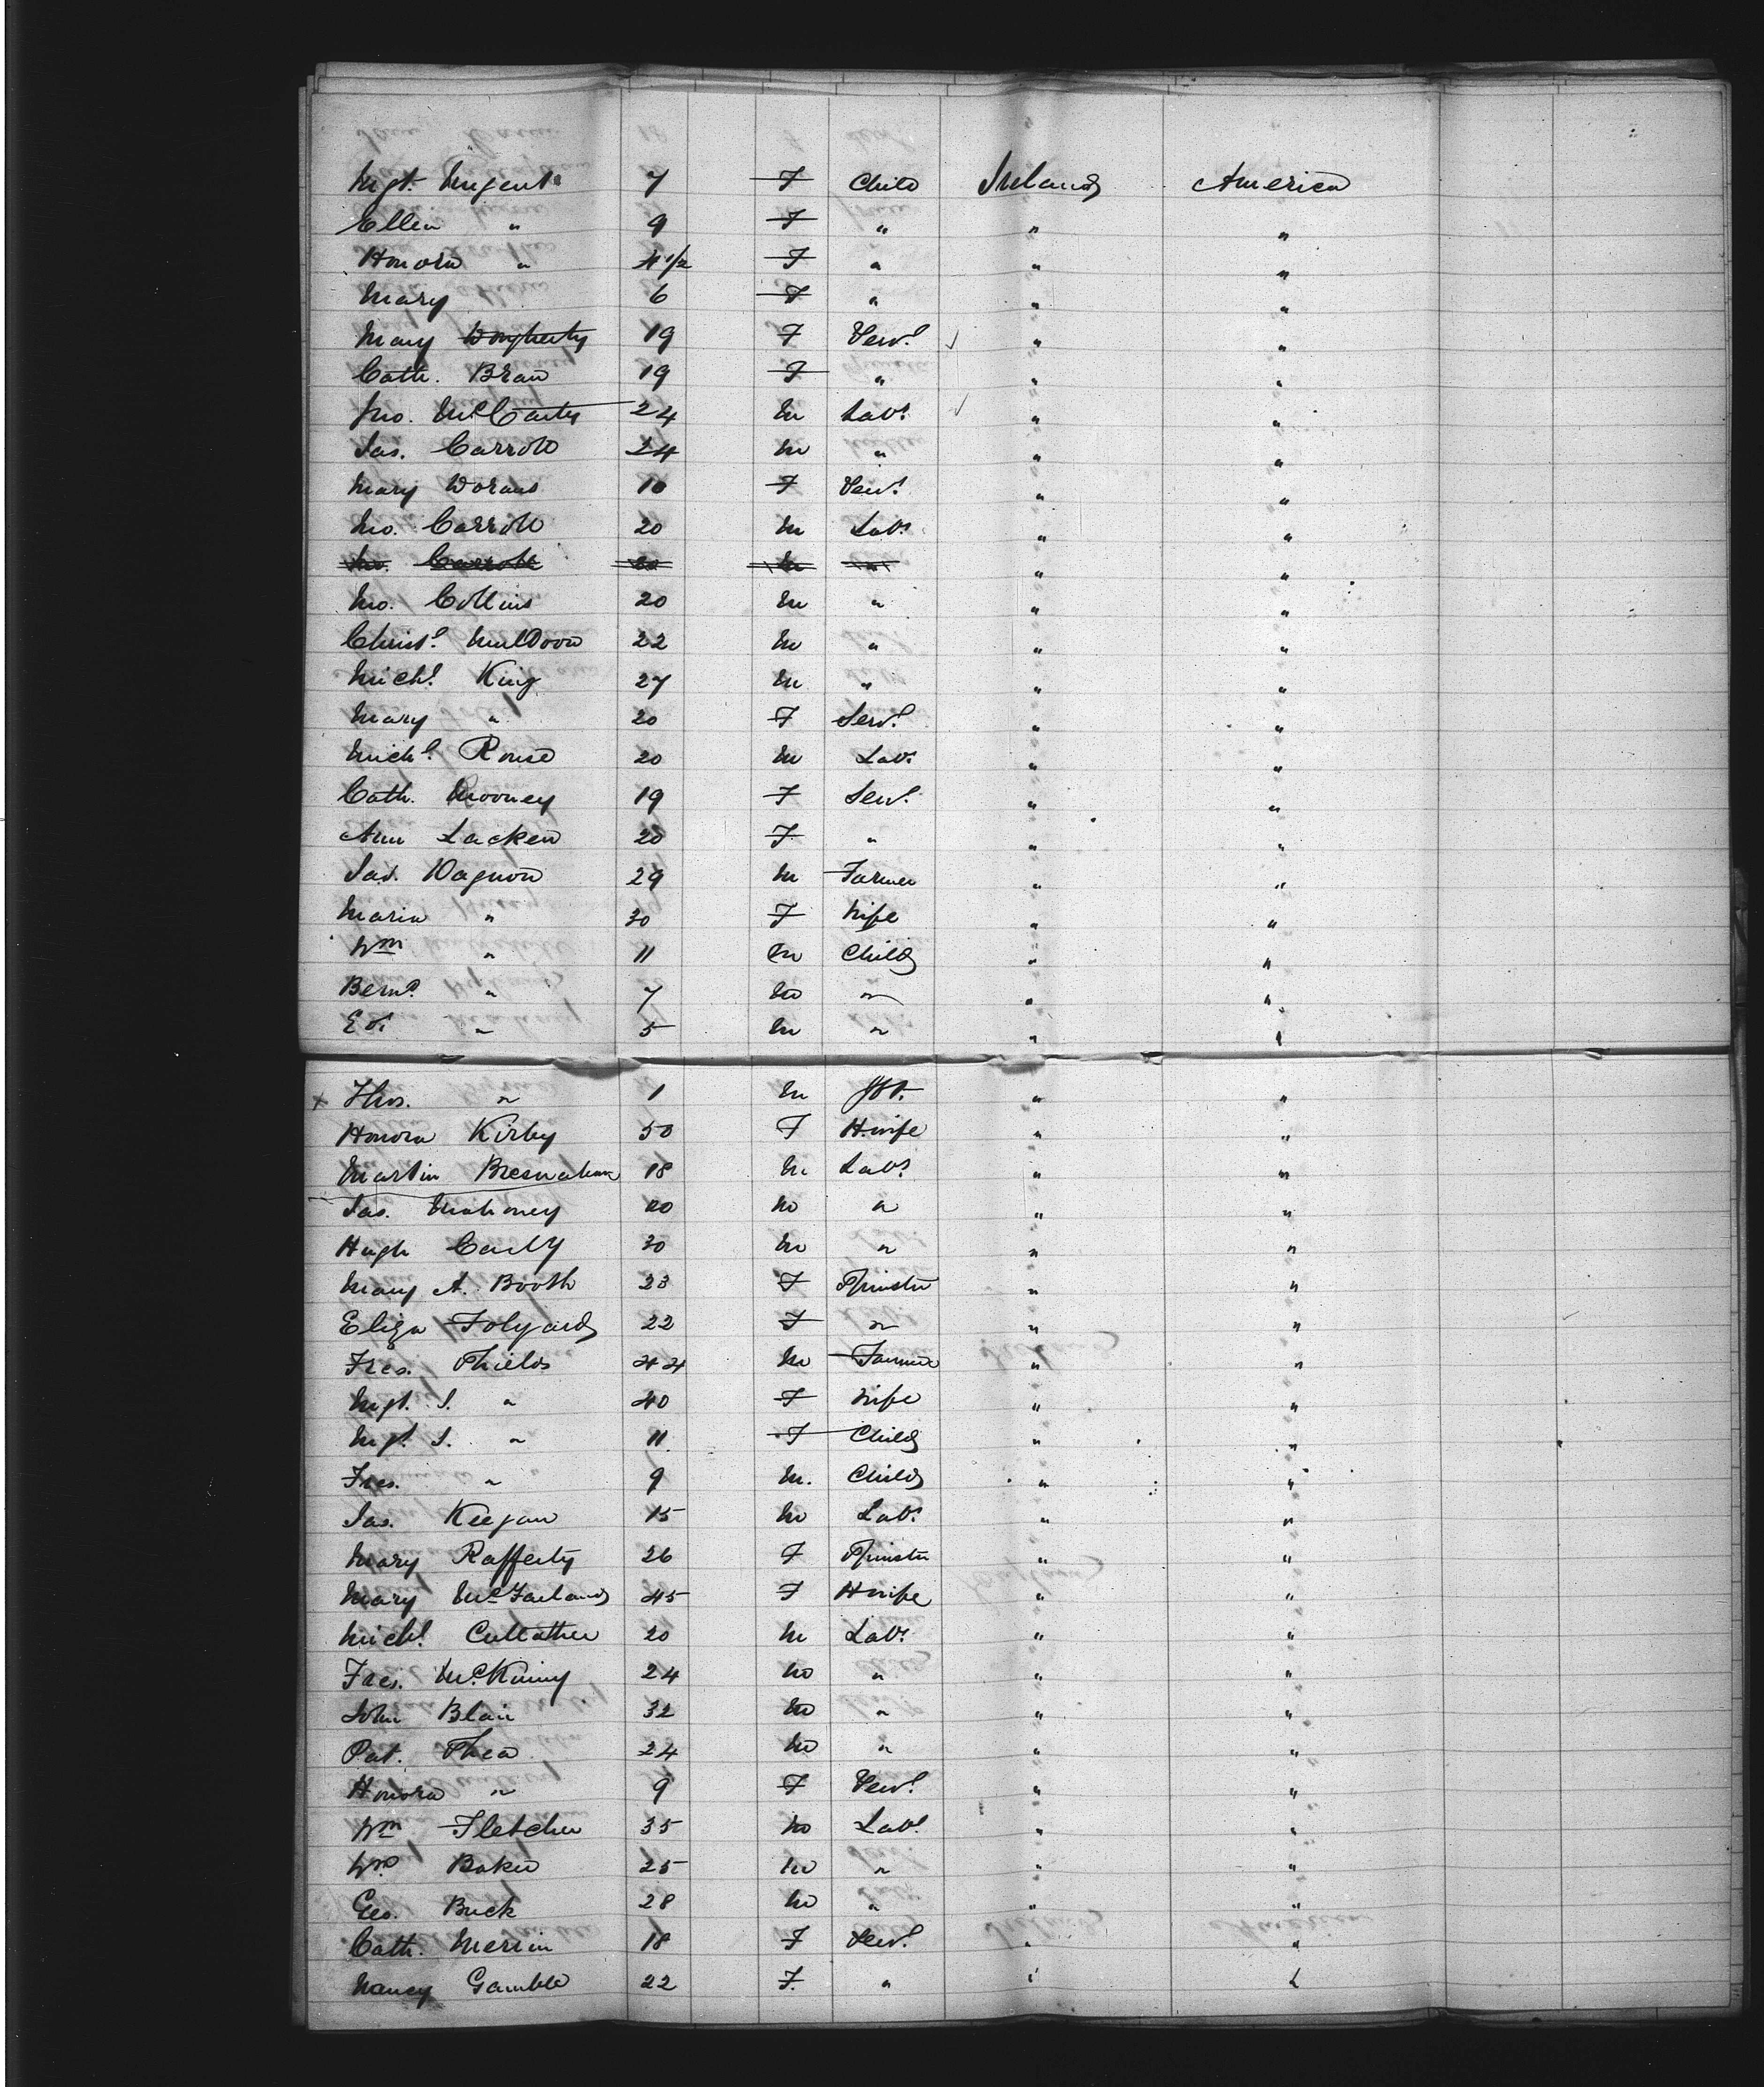 Mgt. Nugent 7 F Child Ireland America
Ellen " 9 F " " "
Honora " 4 1/2 F " " "
Mary 6 F " " "
Mary Dougherty 19 F Servt " "
Cath. Bran 19 F " " "
Jno. McCarty 24 M Labr " "
Jas. Carroll 24 M " " "
Mary Dorans F Servt " "
Jno. Carroll 20 M Labr " "
Jno. Carroll 20 M " " "
Jno. Collins 20 M " " "
Christr Muldoon 22 M " " "
Michl King 27 M " " "
Mary " 20 F Servt " "
Michl Rouse 20 M Labr " "
Cath. Mooney 19 F Servt " "
Ann Lacken 20 F " " "
Jas. Dagnon 29 M Farmer " "
Maria " 30 F Wife " "
Wm " 11 M Child " "
Bernd " 7 M " " "
Ed. " 5 M " " "
Thos. " 1 M Inft. " "
Honora Kirby 50 F H.wife " "
Martin Bresnahan 18 M Labr " "
Jas. Mahoney 20 M " " "
Hugh 30 M " " "
Mary A. Booth 23 F Spinster " "
Eliza Folyard 22 F " " "
Fres. Shields 44 M Farmer " "
Mgt. S. " 40 F Wife " "
Mgt. S. " 11 F Child " "
Fres. " 9 M. Child " "
Jas. Keegan 15 M Labr " "
Mary Rafferty 26 F Spinster " "
Mary McFarland 45 F H wife " "
Michl Cullather 20 M Labr " "
Fres. McKinny 24 M " " "
John Blair 32 M " " "
Pat. Shea 24 M " " "
Honora " 9 F Servt " "
Wm Fletcher 35 M Labr " "
Wm Baker 25 M " " "
Geo. Buck 28 M " " "
Cath. Merrin 18 F Servt " "
Nancy Gamble 22 F. " " "